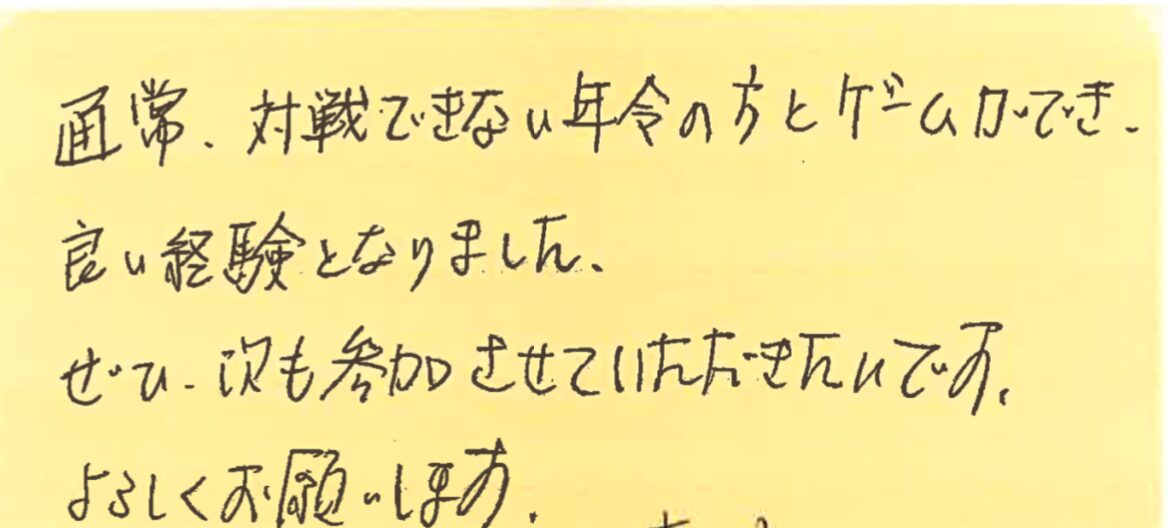 通常、対戦できない年令の方とゲームができ、
良い経験となりました、
ぜひ、次も参加させていただきたいです。
よろしくお願いします。